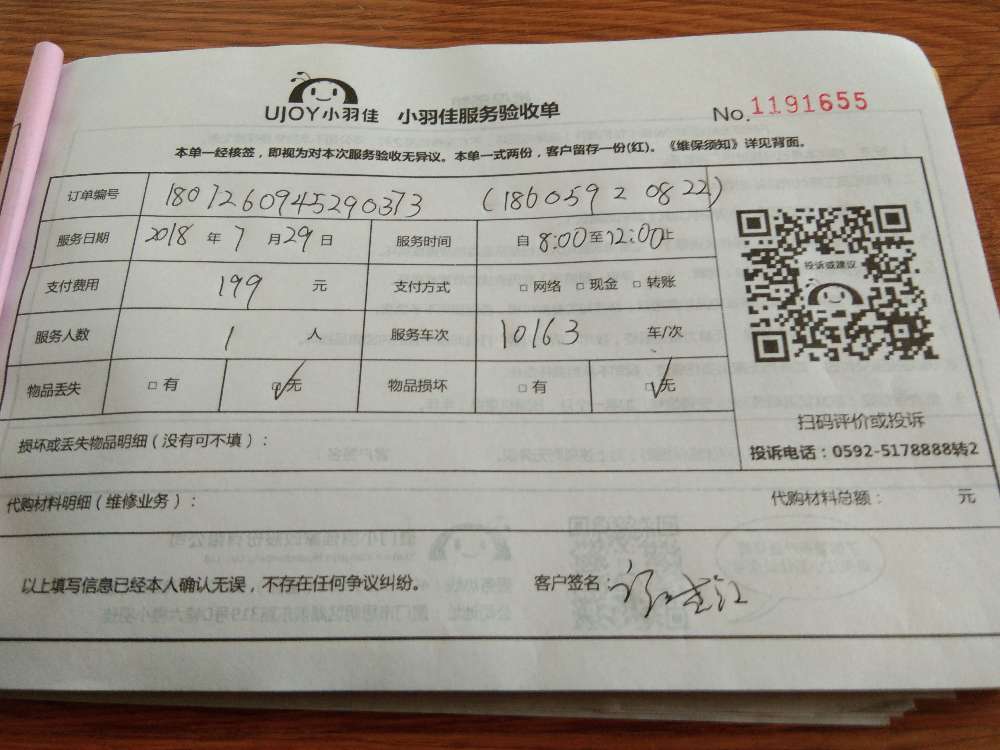 UJOY小羽佳 小羽佳服务验收单 No.1191655
本单一经核签，即视为对本次服务验收无异议。本单一式两份，客户留存一份(红)。《维保须知》详见背面。
订单编号 1807260945290373 (18605920822)
服务日期 2018 年 7 月 29 日 服务时间 自 8:00 至 12:00 止
支付费用 199 元 支付方式 □ 网络 □ 现金 □ 转账
服务人数 1 人 服务车次 10163 车/次
物品丢失 □ 有 ☑ 无 物品损坏 □ 有 ☑ 无
投诉或建议
扫码评价或投诉
投诉电话：0592-5178888转2
损坏或丢失物品明细（没有可不填）：
代购材料明细（维修业务）： 代购材料总额： 元
以上填写信息已经本人确认无误，不存在任何争议纠纷。 客户签名：